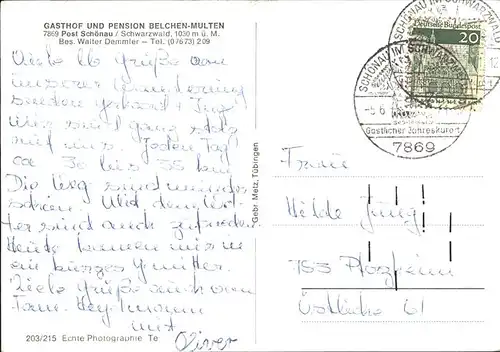 GASTHOF UND PENSION BELCHEN-MULTEN
7869 Post Schönau / Schwarzwald, 1030 m ü. M.
Bes. Walter Demmler – Tel. (07673) 209
Viele lb Grüße von
unserer Wanderung
senden
Wir sind ganz stolz
auf uns. Jeden Tag
ca 30 bis 35 km
Die Weg sind wunder
schön. Mit dem Wet-
ter sind auch zufrieden.
Heute kamen wir in
ein kurzes Gewitter.
Viele Grüße auch von
Fam.
mit
203/215 Echte Photographie
Gebr. Metz, Tübingen
SCHÖNAU IM SCHWARZWALD
Deutsche Bundespost
20
12
SCHÖNAU IM SCHWARZWALD
-5.6
Gastlicher Jahreskurort
7869
Frau
Hilde Jung
753 Pforzheim
Östliche 61